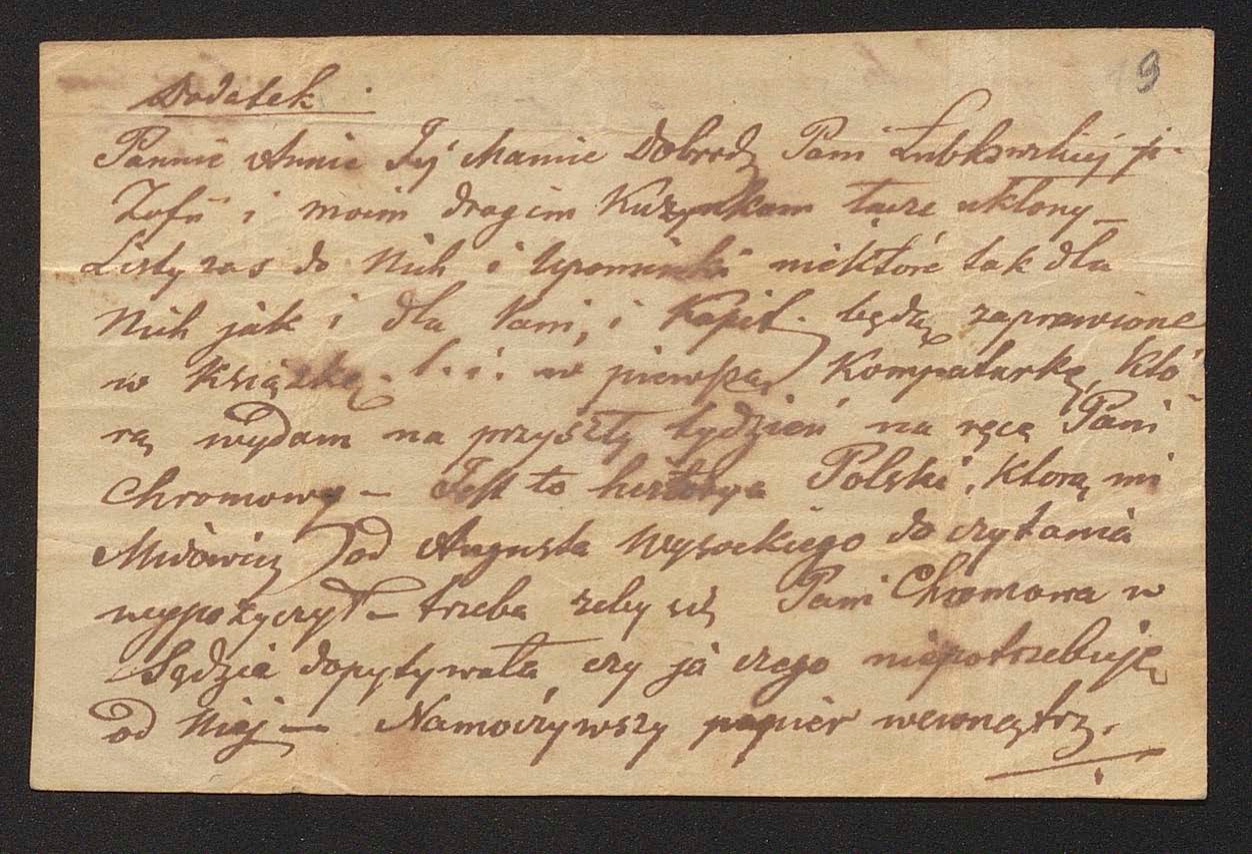 9
Dodatek.
Pannie Annie Jej Mamie Dobrodz Pani Lubkowskiej p.
Zofii i moim drogim Kuzynkom łącze ukłony_
Listy zas do Nich i Upominki niektóre tak dla
Nich jak i dla Pani, i Kapit. będą zaprawione
w Książkę. t. i. w pierwszą Kompaturkę, któ-
rą wydam na przyszły tydzień na ręce Pani
Chromowy – Jest to historya Polski, którą mi
od Augusta Wysockiego do czytania
wypożyczył – trzeba zeby się Pani Chromowa w
Sądzie dopytywała, czy ja czego niepotrzebuję
od Niej — Namoczywszy papier wewnątrz.